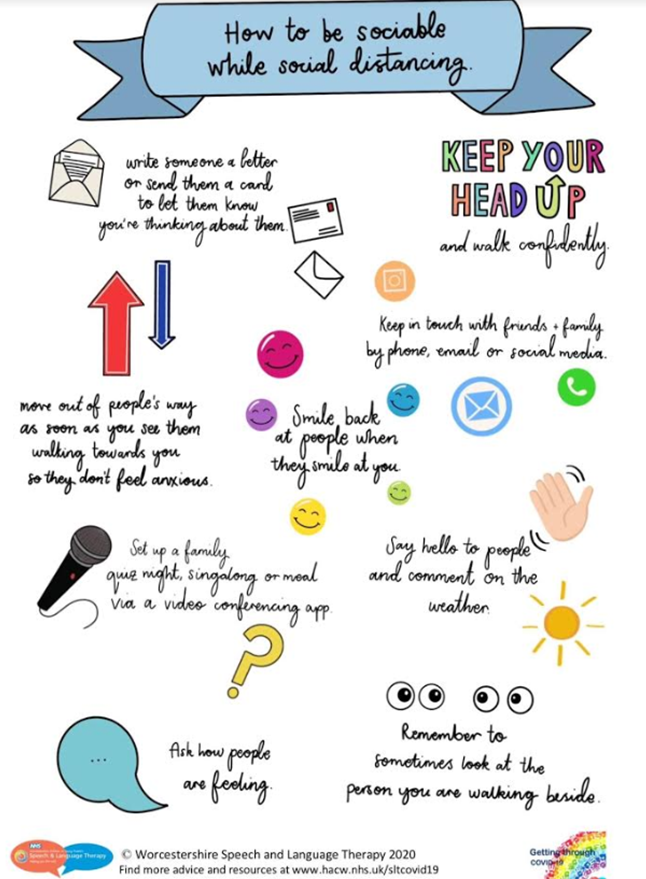 How to be sociable
while social distancing.
write someone a letter
or send them a card
to let them know
you're thinking about them.
KEEP YOUR
HEAD UP
and walk confidently.
Keep in touch with friends + family
by phone, email or social media.
move out of people's way
as soon as you see them
walking towards you
so they don't feel anxious.
Smile back
at people when
they smile at you.
Set up a family
quiz night, singalong or meal
via a video conferencing app.
?
Say hello to people
and comment on the
weather.
...
Ask how people
are feeling.
Remember to
sometimes look at the
person you are walking beside.
NHS
Speech & Language Therapy
© Worcestershire Speech and Language Therapy 2020
Find more advice and resources at www.hacw.nhs.uk/sltcovid19
Getting through
covid19